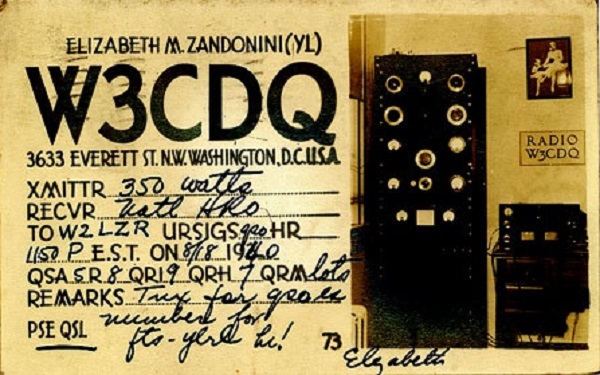 ELIZABETH M. ZANDONINI (YL)
W3CDQ
3633 EVERETT ST. N.W. WASHINGTON, D.C. U.S.A.
XMITTR 350 watts
RECVR Natl HRO
TO W2LZR URSIGS HR
1150 P E.S.T. ON 8/18 1940
QSA 5 R 8 QRI 9 QRH 7 QRM lots
REMARKS Tnx for
number for
PSE QSL
hi!
73
Elizabeth
RADIO
W3CDQ